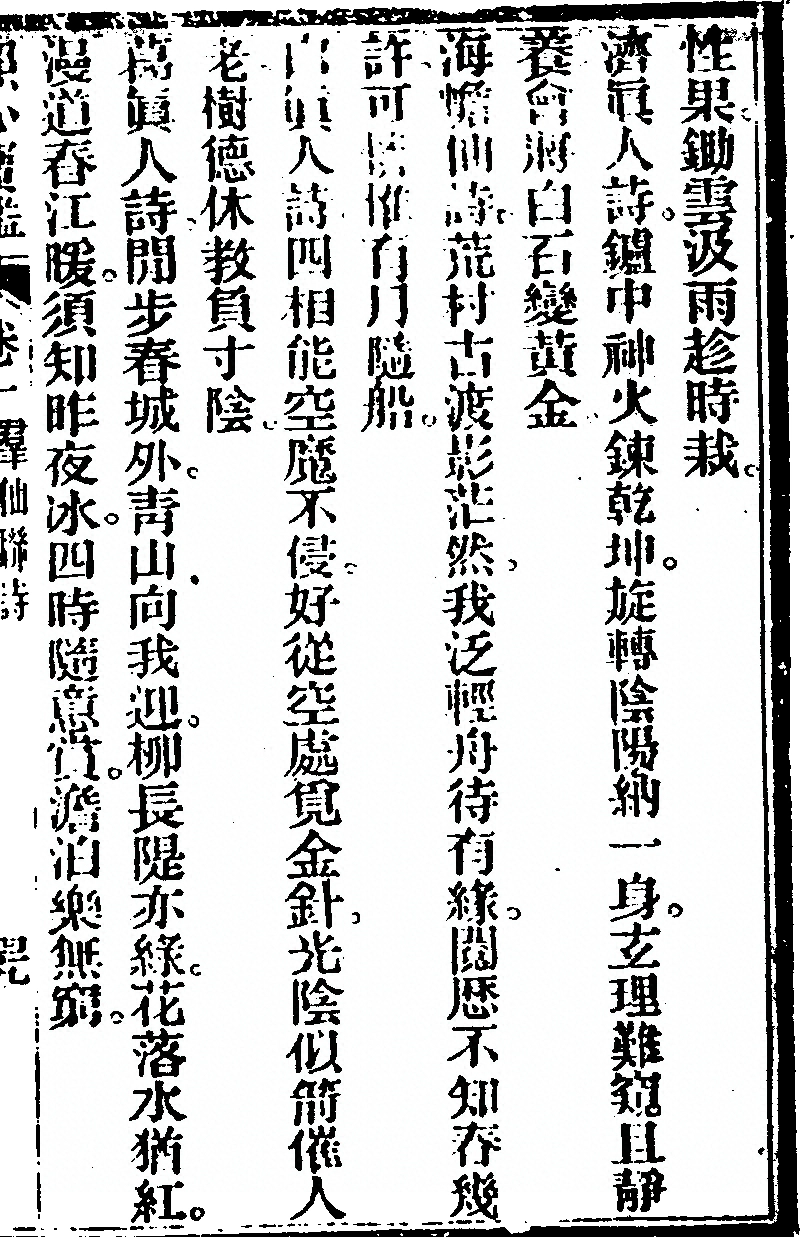 性果鋤雲汲雨趁時栽。
濟眞人詩。鑪中神火鍊乾坤。旋轉陰陽納一身。玄理難窺且靜
養。曾將白石變黃金。
海蟾仙詩。荒村古渡影茫然。我泛輕舟待有緣。閱歷不知春幾
許。可惟有月隨船。
眞人詩四相能空魔不侵。好從空處覓金針。光陰似箭催人
老。樹德休教負寸陰。
萬眞人詩。閒步春城外。靑山向我迎。柳長隄亦綠。花落水猶紅。
漫道春江暖。須知昨夜冰。四時隨意賞。澹泊樂無窮。
卷一羣仙聯詩